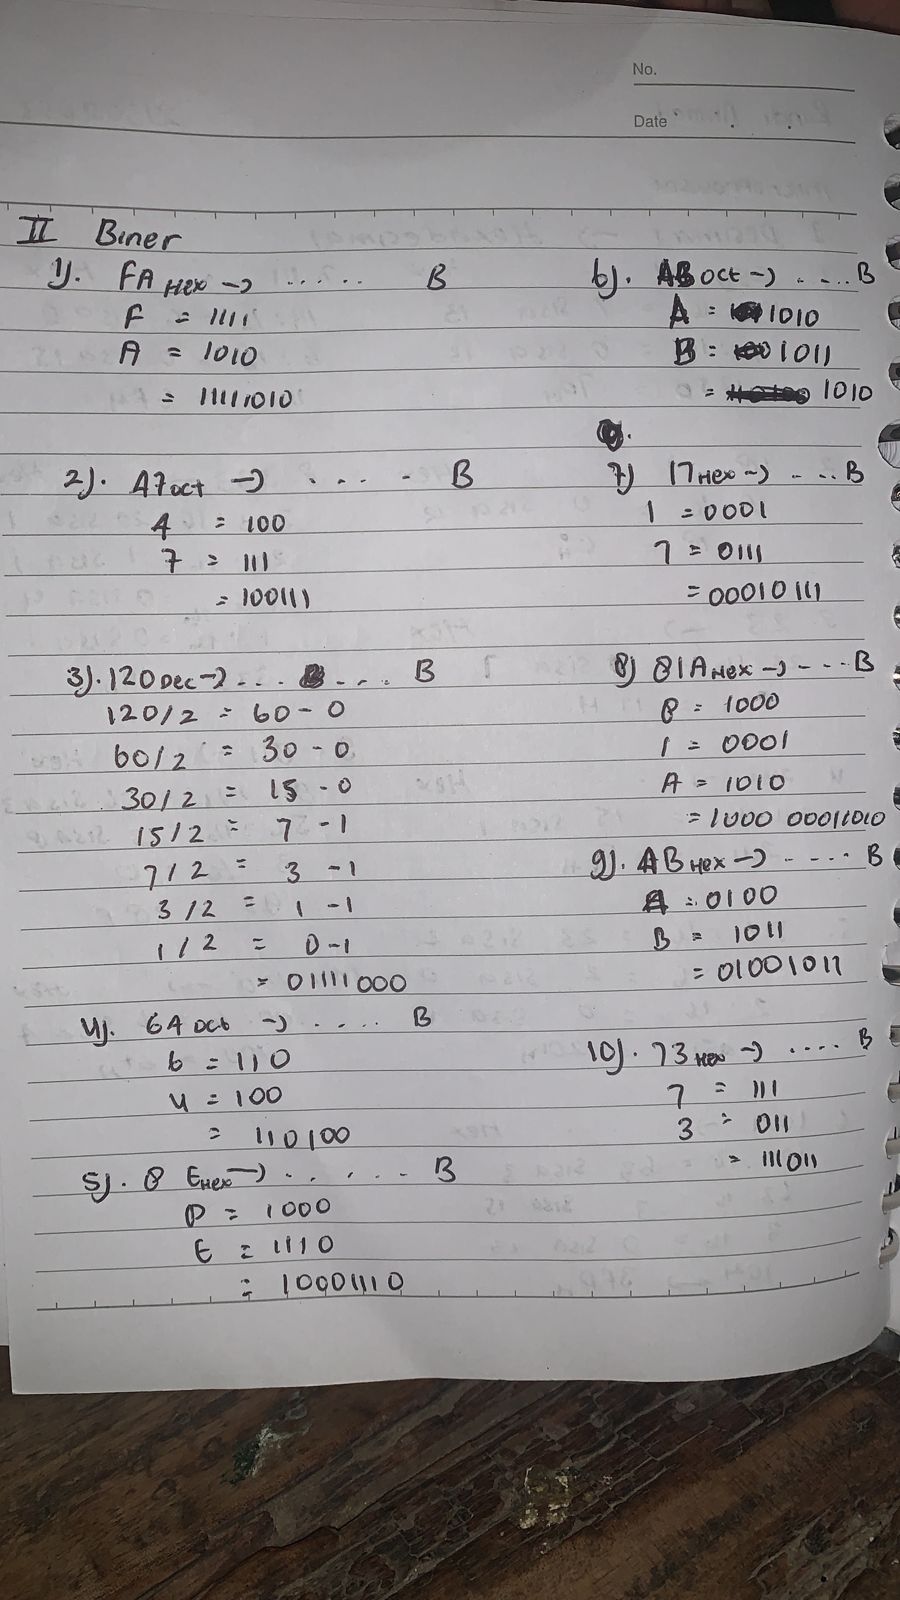 No.
Date
II Biner
1). FA Hex -> ..... B
F = 1111
A = 1010
= 11111010
2). 47 oct -> .... B
4 = 100
7 = 111
= 100111
3). 120 Dec -> ... ... B
120/2 = 60 - 0
60/2 = 30 - 0
30/2 = 15 - 0
15/2 = 7 - 1
7/2 = 3 - 1
3/2 = 1 - 1
1/2 = 0 - 1
= 01111000
4). 64 Oct -> .... B
6 = 110
4 = 100
= 110100
5). 8 E Hex -> ...... B
8 = 1000
E = 1110
= 10001110
6). AB oct -> .... B
A = 1010
B = 1011
= 1010
7) 17 Hex -> .... B
1 = 0001
7 = 0111
= 00010111
8) 81A Hex -> --- B
8 = 1000
1 = 0001
A = 1010
= 1000 00011010
9). AB Hex -> ..... B
A = 0100
B = 1011
= 01001011
10). 73 Hex -> .... B
7 = 111
3 = 011
= 111011